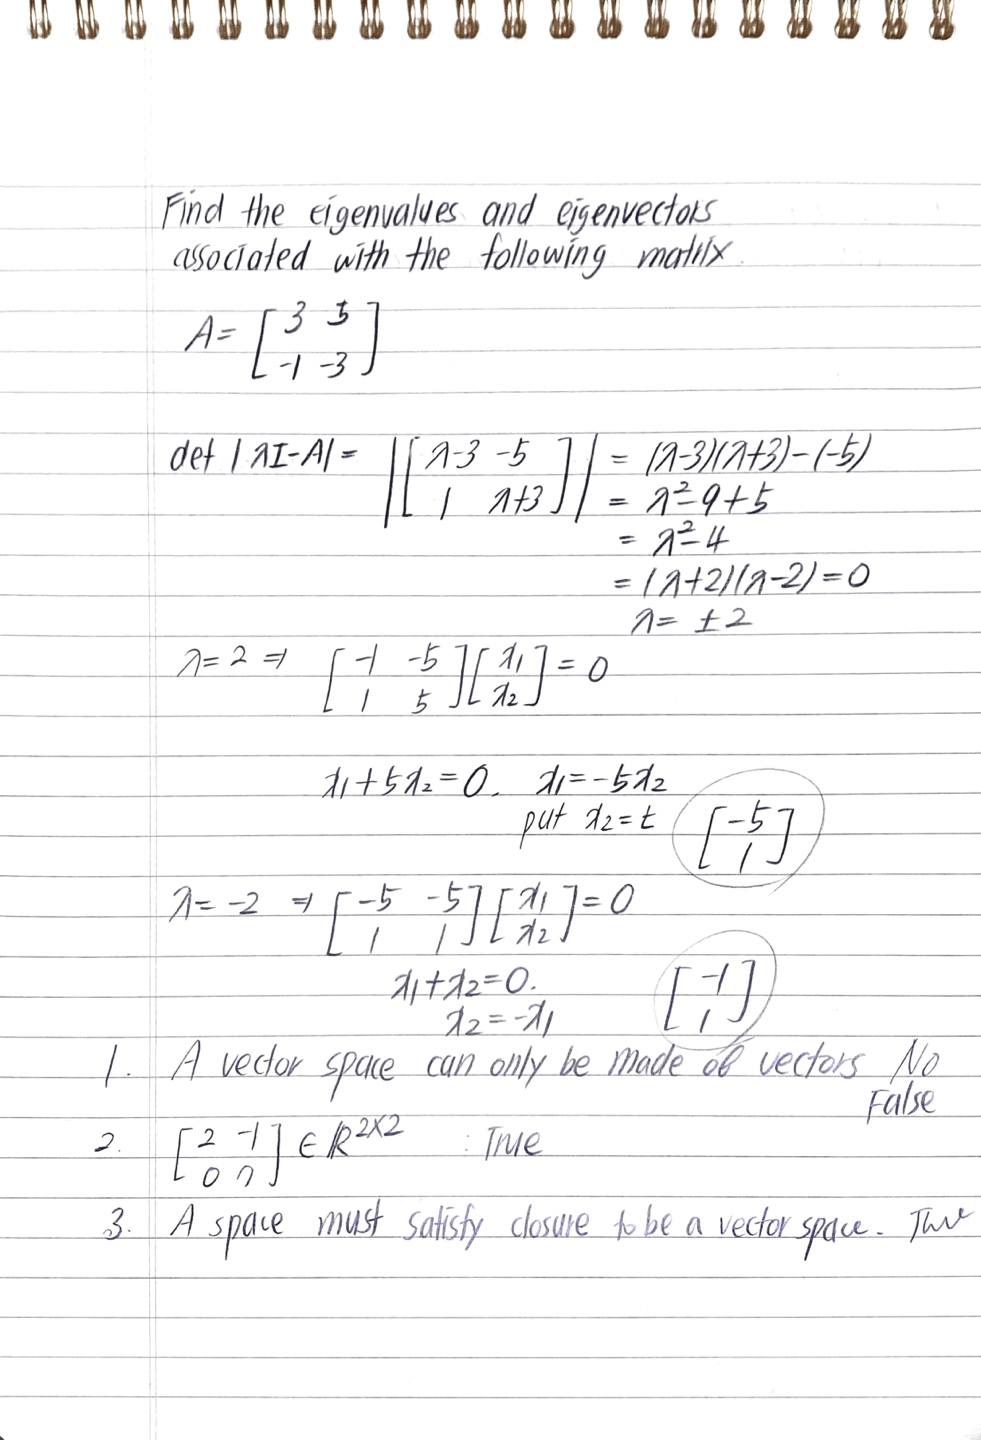 Find the eigenvalues and eigenvectors
associated with the following matrix.
A = [3 5
-1 -3]
det |λI-A| = |[λ-3 -5
1 λ+3]| = (λ-3)(λ+3)-(-5)
= λ²-9+5
= λ²-4
= (λ+2)(λ-2)=0
λ= ±2
λ=2 ⇒ [-1 -5
1 5] [x₁
x₂] = 0
x₁+5x₂=0. x₁=-5x₂
put x₂=t [-5
1]
λ= -2 ⇒ [-5 -5
1 1] [x₁
x₂] = 0
x₁+x₂=0.
x₂=-x₁ [-1
1]
1. A vector space can only be made of vectors No
False
2. [2 -1
0 2] ∈ ℝ²ˣ² : True
3. A space must satisfy closure to be a vector space. True